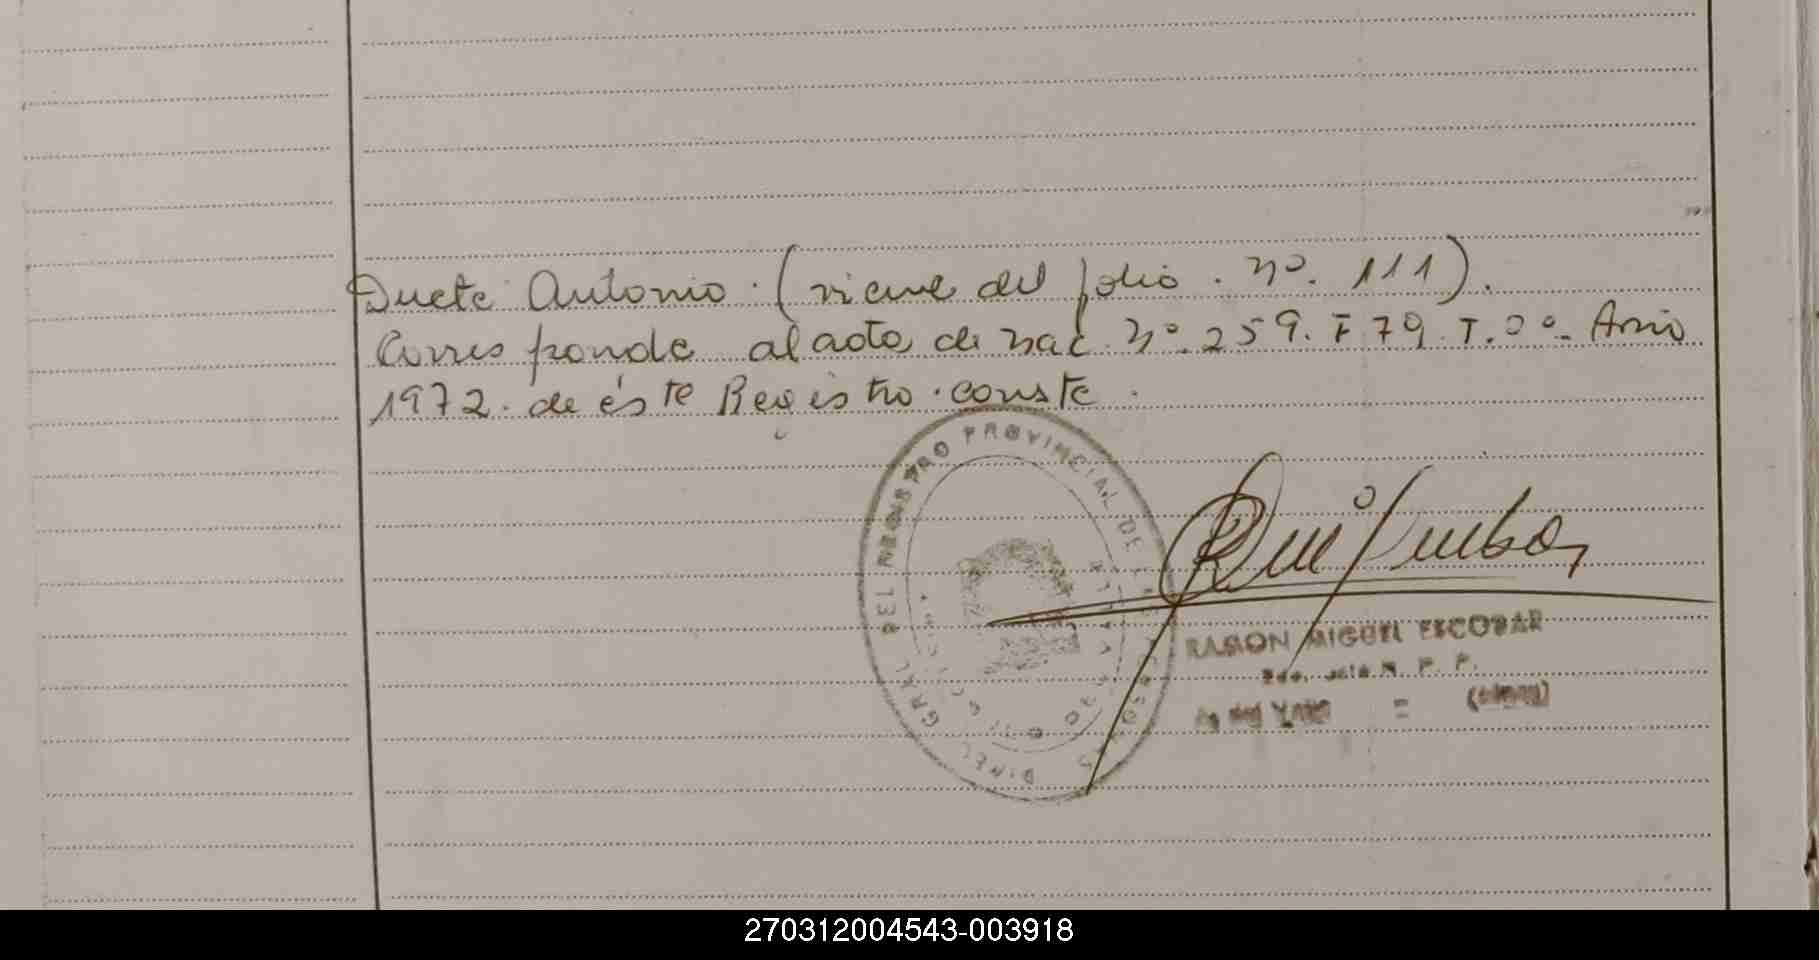 Duete Antonio. (viene del folio. nº. 111).
Corresponde al acta de nac. nº. 259. F 79. T. 2º. Año
1972. de éste Registro. conste.
DIREC GRAL DEL REGISTRO PROVINCIAL DE LAS PERSONAS
RAMON MIGUEL ESCOBAR
R. P. P.
270312004543-003918